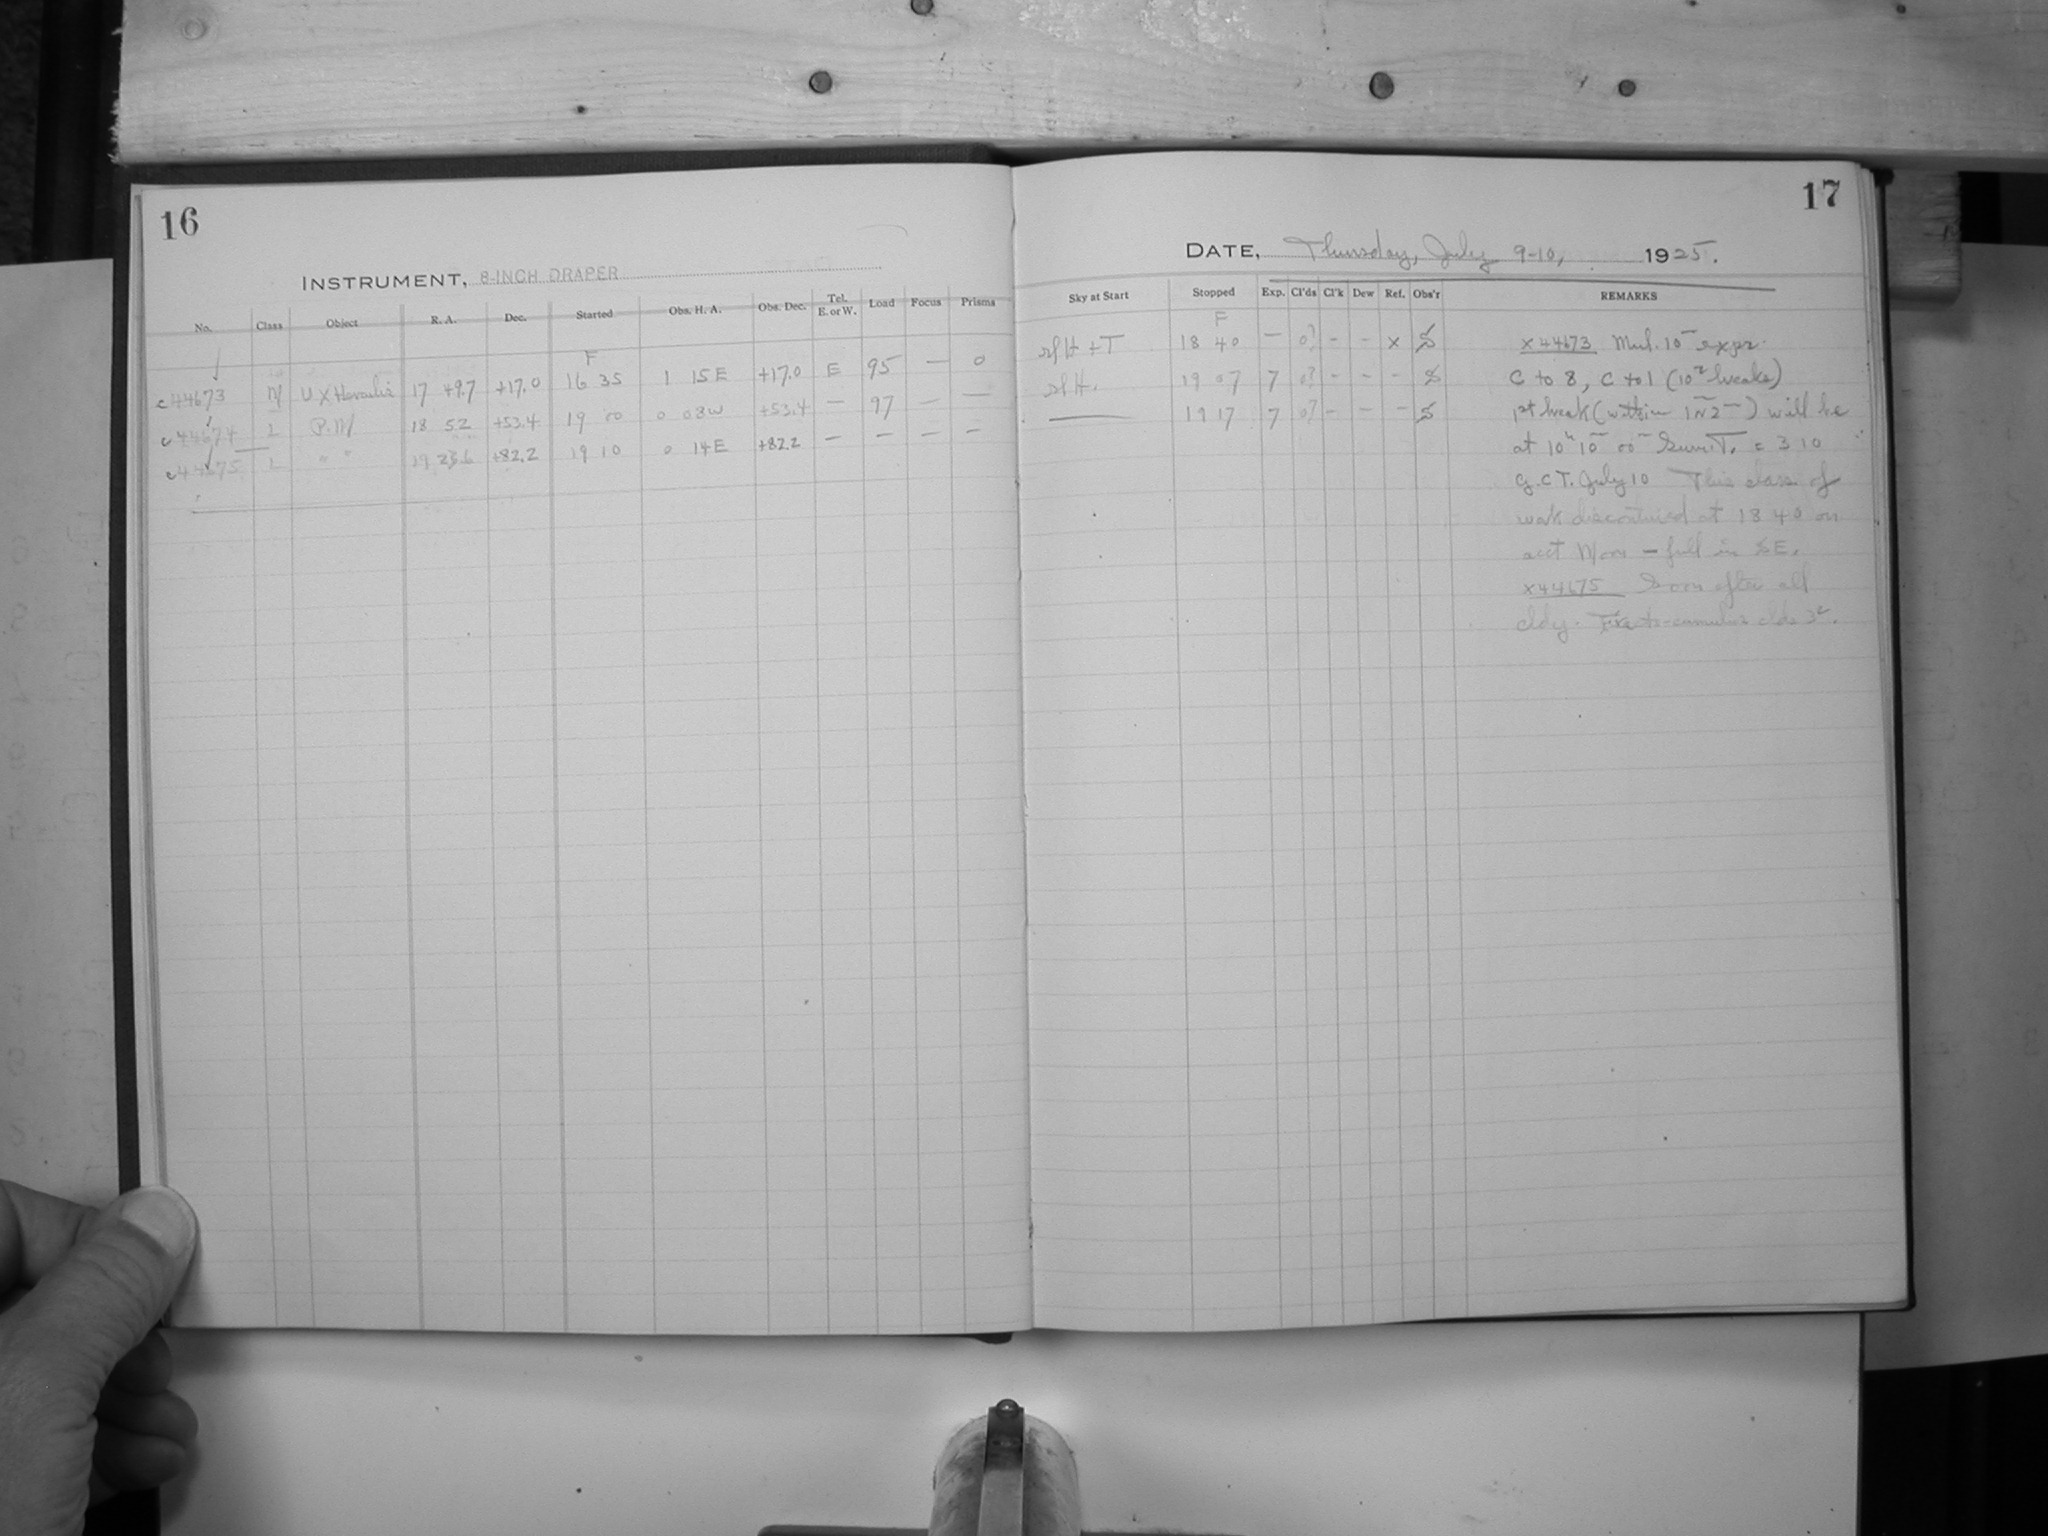 16
INSTRUMENT, 8-INCH DRAPER
No. Class Object R. A. Dec. Started Obs. H. A. Obs. Dec. Tel. E. or W. Load Focus Prisms
F
c44673 M UX Herculis 17 49.7 +17.0 16 35 1 15 E +17.0 E 95 — 0
c44674 L P.M 18 52 +53.4 19 00 0 08 W +53.4 — 97 — —
c44675 L " " 19 23.6 +82.2 19 10 0 14 E +82.2 — — — —
17
DATE, Thursday, July 9-10, 1925.
Sky at Start Stopped Exp. Cl'ds Cl'k Dew Ref. Obs'r REMARKS
F
sl H + T 18 40 — 0? - - x S
sl H. 19 07 7 0? - - - S
— 19 17 7 0? - - - S
x44673 Mul. 10 expr.
C to 8, C to 1 (10 breaks)
1st break (within 1 2 ) will be
at 10 10 00 T. = 3 10
G.C.T. July 10 This class of
work discontinued at 18 40 on
acct Moon — full in SE.
x44675 Soon after all
cldy. cumulus clds